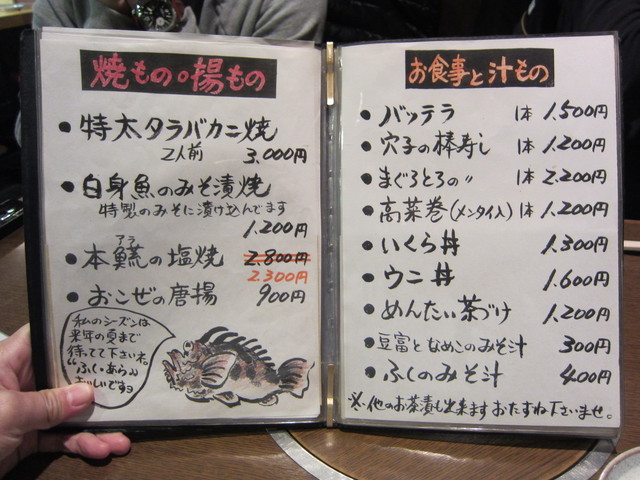 焼もの。揚もの
• 特太タラバカニ焼
2人前 3,000円
• 白身魚のみそ漬焼
特製のみそに漬け込んでます
1,200円
アラ
• 本𩺊の塩焼 2.800円
2.300円
• おこぜの唐揚 900円
私のシーズンは
来年の夏まで
待ってて下さいネ。
“ふく・あら„
おいしいですョ
お食事と汁もの
• バッテラ 1本 1.500円
• 穴子の棒寿し 1本 1.200円
• まぐろとろの〃 1本 2.200円
• 高菜巻(メンタイ入) 1本 1.200円
• いくら丼 1.300円
• ウニ丼 1.600円
• めんたい茶づけ 1.200円
• 豆富となめこのみそ汁 300円
• ふくのみそ汁 400円
※他のお茶漬も出来ます おたずね下さいませ。